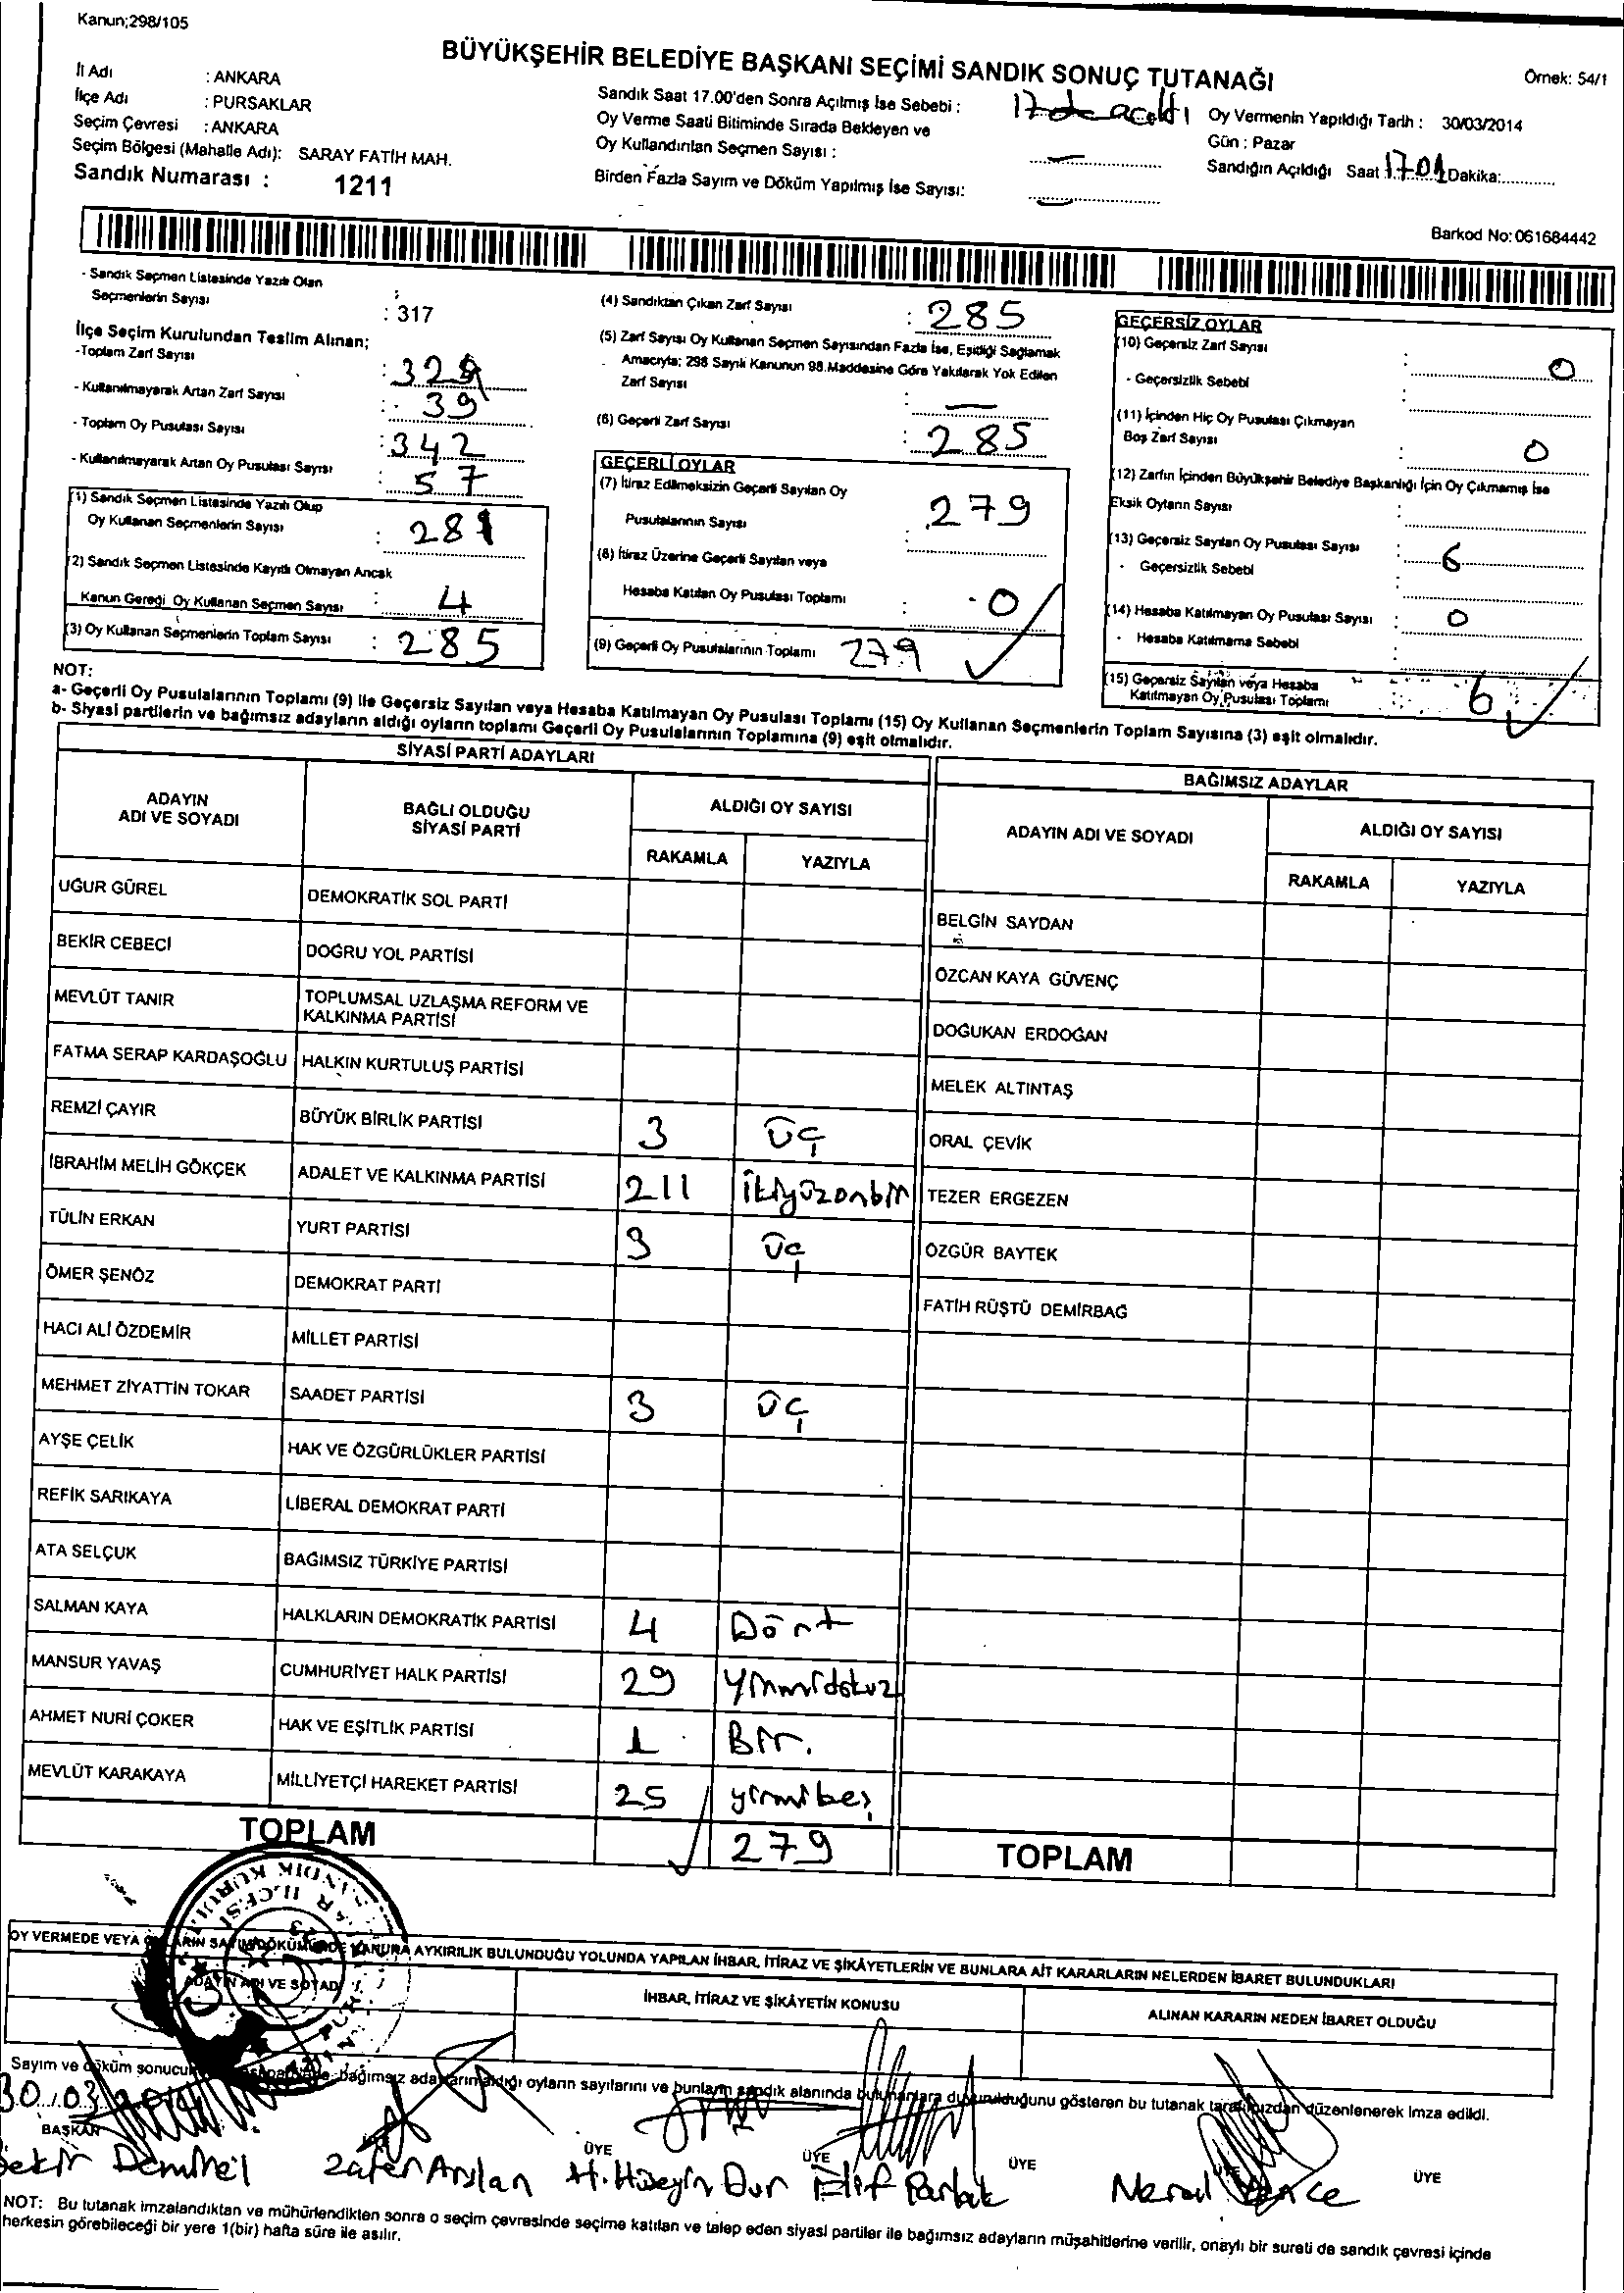 Kanun;298/105
BÜYÜKŞEHİR BELEDİYE BAŞKANI SEÇİMİ SANDIK SONUÇ TUTANAĞI
Örnek: 54/1
İl Adı : ANKARA
İlçe Adı : PURSAKLAR
Seçim Çevresi : ANKARA
Seçim Bölgesi (Mahalle Adı): SARAY FATİH MAH.
Sandık Numarası : 1211
Sandık Saat 17.00'den Sonra Açılmış İse Sebebi : 17 de açıldı
Oy Verme Saati Bitiminde Sırada Bekleyen ve
Oy Kullandırılan Seçmen Sayısı : —
Birden Fazla Sayım ve Döküm Yapılmış İse Sayısı: —
Oy Vermenin Yapıldığı Tarih : 30/03/2014
Gün : Pazar
Sandığın Açıldığı Saat 17.01 Dakika:
Barkod No: 061684442
- Sandık Seçmen Listesinde Yazılı Olan
Seçmenlerin Sayısı : 317
İlçe Seçim Kurulundan Teslim Alınan;
-Toplam Zarf Sayısı : 329
- Kullanılmayarak Artan Zarf Sayısı : 39
- Toplam Oy Pusulası Sayısı : 342
- Kullanılmayarak Artan Oy Pusulası Sayısı : 57
(1) Sandık Seçmen Listesinde Yazılı Olup
Oy Kullanan Seçmenlerin Sayısı : 281
(2) Sandık Seçmen Listesinde Kayıtlı Olmayan Ancak
Kanun Gereği Oy Kullanan Seçmen Sayısı : 4
(3) Oy Kullanan Seçmenlerin Toplam Sayısı : 285
(4) Sandıktan Çıkan Zarf Sayısı : 285
(5) Zarf Sayısı Oy Kullanan Seçmen Sayısından Fazla İse, Eşitliği Sağlamak
Amacıyla; 298 Sayılı Kanunun 98.Maddesine Göre Yakılarak Yok Edilen
Zarf Sayısı : —
(6) Geçerli Zarf Sayısı : 285
GEÇERLİ OYLAR
(7) İtiraz Edilmeksizin Geçerli Sayılan Oy
Pusulalarının Sayısı : 279
(8) İtiraz Üzerine Geçerli Sayılan veya
Hesaba Katılan Oy Pusulası Toplamı : 0
(9) Geçerli Oy Pusulalarının Toplamı 279
GEÇERSİZ OYLAR
(10) Geçersiz Zarf Sayısı : 0
- Geçersizlik Sebebi :
(11) İçinden Hiç Oy Pusulası Çıkmayan
Boş Zarf Sayısı : 0
(12) Zarfın İçinden Büyükşehir Belediye Başkanlığı İçin Oy Çıkmamış İse
Eksik Oyların Sayısı :
(13) Geçersiz Sayılan Oy Pusulası Sayısı : 6
- Geçersizlik Sebebi :
(14) Hesaba Katılmayan Oy Pusulası Sayısı : 0
- Hesaba Katılmama Sebebi :
(15) Geçersiz Sayılan veya Hesaba
Katılmayan Oy Pusulası Toplamı 6
NOT:
a- Geçerli Oy Pusulalarının Toplamı (9) ile Geçersiz Sayılan veya Hesaba Katılmayan Oy Pusulası Toplamı (15) Oy Kullanan Seçmenlerin Toplam Sayısına (3) eşit olmalıdır.
b- Siyasi partilerin ve bağımsız adayların aldığı oyların toplamı Geçerli Oy Pusulalarının Toplamına (9) eşit olmalıdır.
SİYASİ PARTİ ADAYLARI
ADAYIN ADI VE SOYADI BAĞLI OLDUĞU SİYASİ PARTİ ALDIĞI OY SAYISI
RAKAMLA YAZIYLA
UĞUR GÜREL DEMOKRATİK SOL PARTİ
BEKİR CEBECİ DOĞRU YOL PARTİSİ
MEVLÜT TANIR TOPLUMSAL UZLAŞMA REFORM VE KALKINMA PARTİSİ
FATMA SERAP KARDAŞOĞLU HALKIN KURTULUŞ PARTİSİ
REMZİ ÇAYIR BÜYÜK BİRLİK PARTİSİ 3 üç
İBRAHİM MELİH GÖKÇEK ADALET VE KALKINMA PARTİSİ 211 ikiyüzonbir
TÜLİN ERKAN YURT PARTİSİ 3 üç
ÖMER ŞENÖZ DEMOKRAT PARTİ
HACI ALİ ÖZDEMİR MİLLET PARTİSİ
MEHMET ZİYATTİN TOKAR SAADET PARTİSİ 3 üç
AYŞE ÇELİK HAK VE ÖZGÜRLÜKLER PARTİSİ
REFİK SARIKAYA LİBERAL DEMOKRAT PARTİ
ATA SELÇUK BAĞIMSIZ TÜRKİYE PARTİSİ
SALMAN KAYA HALKLARIN DEMOKRATİK PARTİSİ 4 Dört
MANSUR YAVAŞ CUMHURİYET HALK PARTİSİ 29 Yirmidokuz
AHMET NURİ ÇOKER HAK VE EŞİTLİK PARTİSİ 1 Bir.
MEVLÜT KARAKAYA MİLLİYETÇİ HAREKET PARTİSİ 25 yirmibeş
TOPLAM 279
BAĞIMSIZ ADAYLAR
ADAYIN ADI VE SOYADI ALDIĞI OY SAYISI
RAKAMLA YAZIYLA
BELGİN SAYDAN
ÖZCAN KAYA GÜVENÇ
DOĞUKAN ERDOĞAN
MELEK ALTINTAŞ
ORAL ÇEVİK
TEZER ERGEZEN
ÖZGÜR BAYTEK
FATİH RÜŞTÜ DEMİRBAĞ
TOPLAM
OY VERMEDE VEYA OYLARIN SAYIM/DÖKÜMÜNDE KANUNA AYKIRILIK BULUNDUĞU YOLUNDA YAPILAN İHBAR, İTİRAZ VE ŞİKÂYETLERİN VE BUNLARA AİT KARARLARIN NELERDEN İBARET BULUNDUKLARI
ADAYIN ADI VE SOYADI İHBAR, İTİRAZ VE ŞİKÂYETİN KONUSU ALINAN KARARIN NEDEN İBARET OLDUĞU
Sayım ve döküm sonucu bağımsız adayların aldığı oyların sayılarını ve bunların sandık alanında bulunanlara duyurulduğunu gösteren bu tutanak tarafımızdan düzenlenerek imza edildi.
30.03.2014
BAŞKAN ÜYE ÜYE ÜYE ÜYE ÜYE ÜYE
Bekir Demirel Zafer Arslan H.Hüseyin Dur Elif Parlak Meral
NOT: Bu tutanak imzalandıktan ve mühürlendikten sonra o seçim çevresinde seçime katılan ve talep eden siyasi partiler ile bağımsız adayların müşahitlerine verilir, onaylı bir sureti de sandık çevresi içinde
herkesin görebileceği bir yere 1(bir) hafta süre ile asılır.